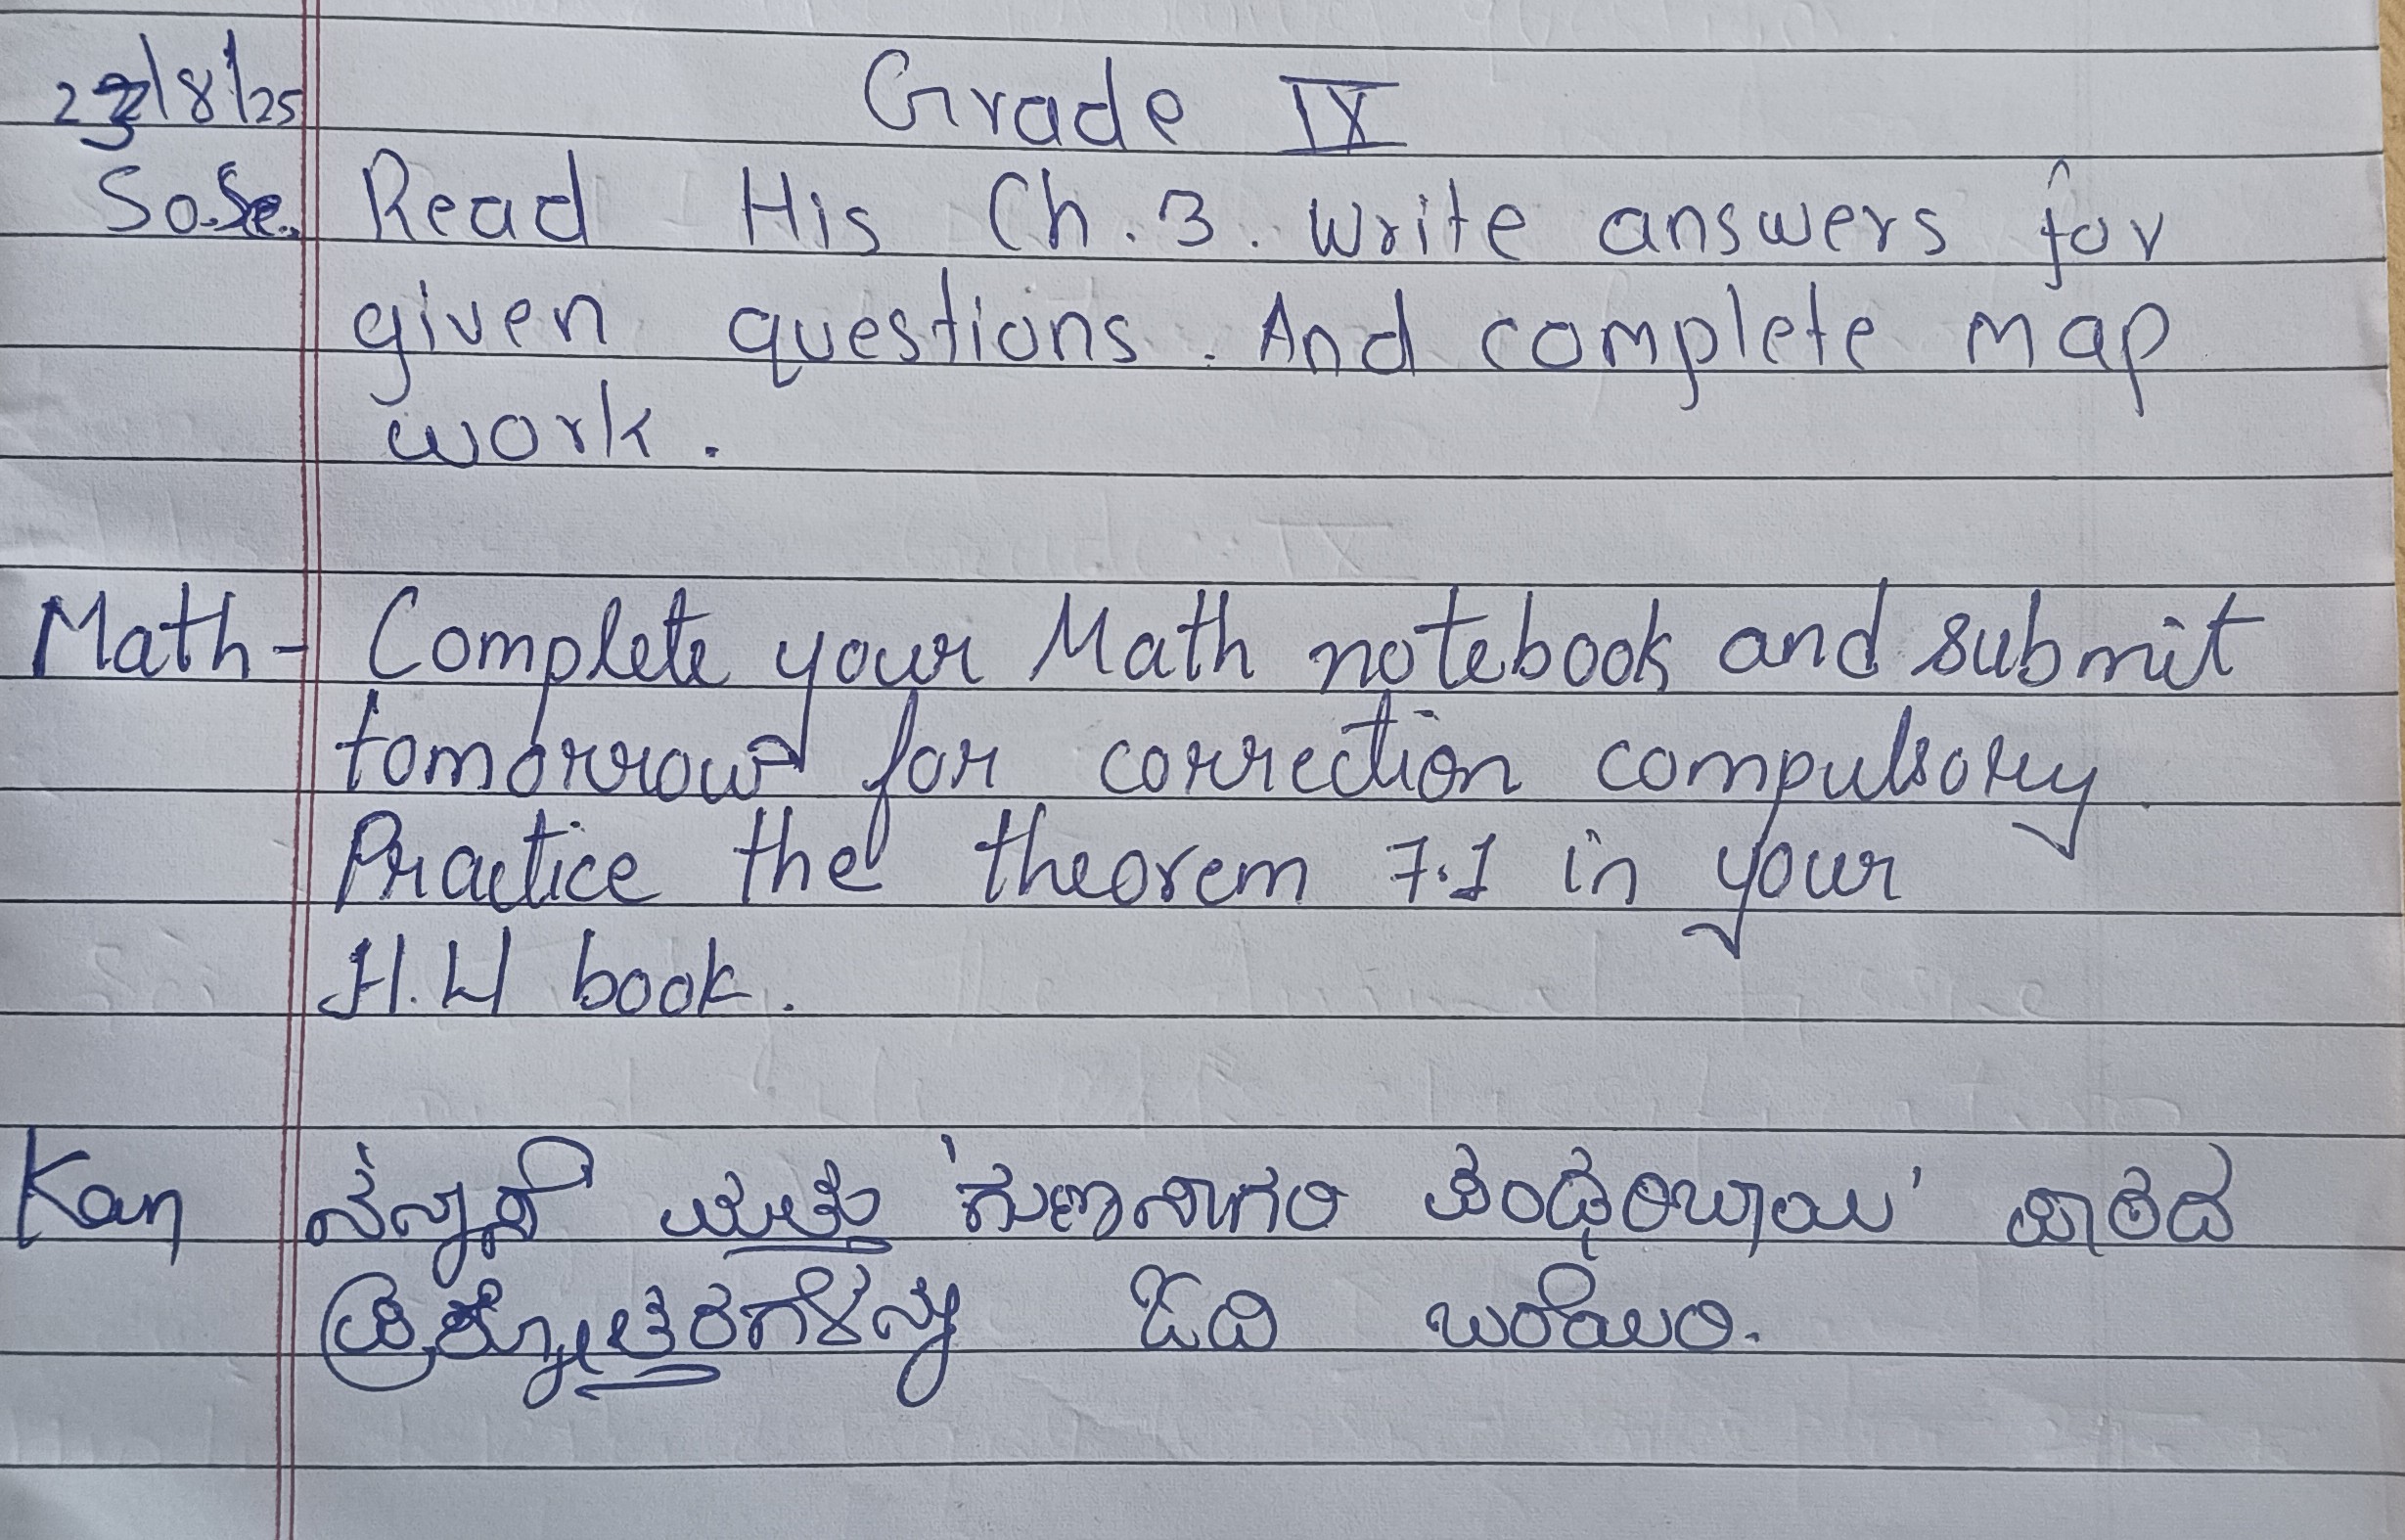 23/8/25 Grade IX
So.Sc. Read His Ch. 3. Write answers for
given questions. And complete map
work.
Math- Complete your Math notebook and submit
tomorrow for correction compulsory.
Practice the theorem 7.1 in your
H.W book.
Kan ಮತ್ತು 'ಗುಣಸಾಗರಿ ಪಂಢರಿಬಾಯಿ' ಪಾಠದ
ಪ್ರಶ್ನೋತ್ತರಗಳನ್ನು ಓದಿ ಬರೆಯಿರಿ.